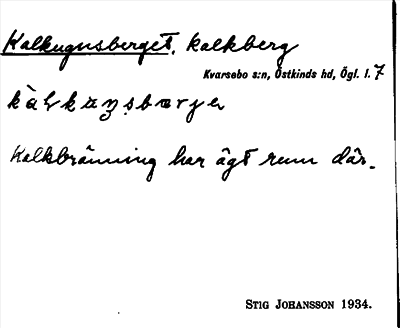 Kalkugnsberget, kalkberg
Kvarsebo s:n, Östkinds hd, Ögl. l. 7
Kalkbränning har ägt rum där.
STIG JOHANSSON 1934.